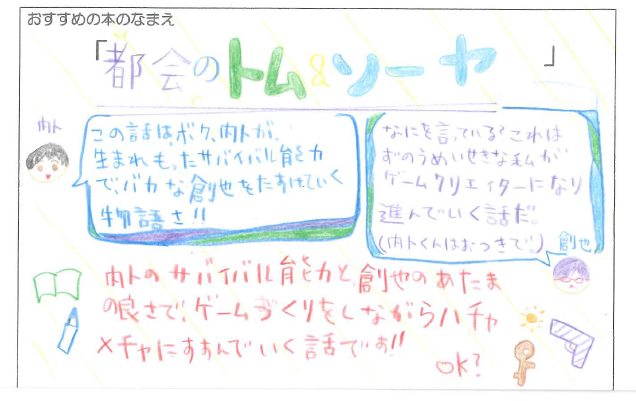 おすすめの本のなまえ
「都会のトム&ソーヤ」
内ト
この話は、ボク、内トが、
生まれもったサバイバル能力
で、バカな創也をたすけていく
物語さ!!
なにを言っている?これは
ずのうめいせきな私が
ゲームクリエイターになり
進んでいく話だ。
(内トくんはおつきで!)
創也
内トのサバイバル能力と、創也のあたま
の良さで、ゲームづくりをしながらハチャ
メチャにすすんでいく話でお!!
ok?